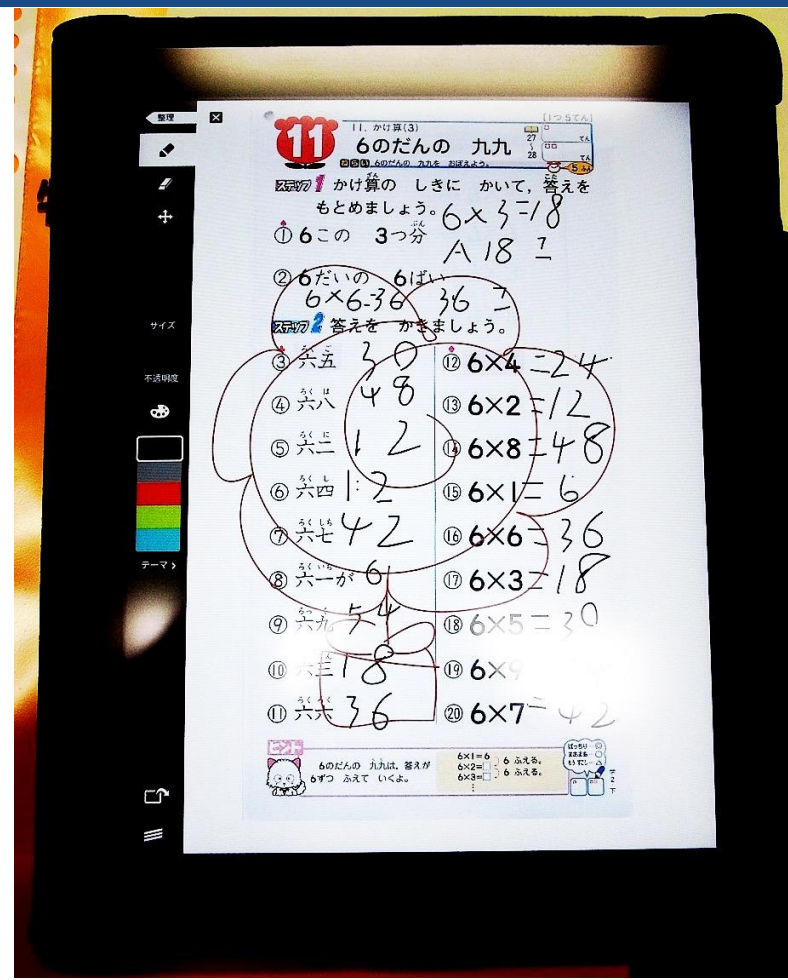 整理
サイズ
不透明度
テーマ
11
11. かけ算(3)
6のだんの 九九
ねらい 6のだんの 九九を おぼえよう。
(1つ5てん)
27
〜
28
てん
てん
5ふん
ステップ1 かけ算の しきに かいて, 答えを
もとめましょう。
① 6この 3つ分
6×3=18
A 18 こ
② 6だいの 6ばい
6×6=36 36
ステップ2 答えを かきましょう。
③ 六五 30
④ 六八 48
⑤ 六二 12
⑥ 六四 12
⑦ 六七 42
⑧ 六一が 6
⑨ 六九 54
⑩ 六三 18
⑪ 六六 36
⑫ 6×4=24
⑬ 6×2=12
⑭ 6×8=48
⑮ 6×1=6
⑯ 6×6=36
⑰ 6×3=18
⑱ 6×5=30
⑲ 6×9
⑳ 6×7=42
ヒント
6のだんの 九九は, 答えが
6ずつ ふえて いくよ。
6×1=6
6×2=□
6×3=□
6 ふえる。
6 ふえる。
ばっちり…◎
まあまあ…○
もうすこし…△